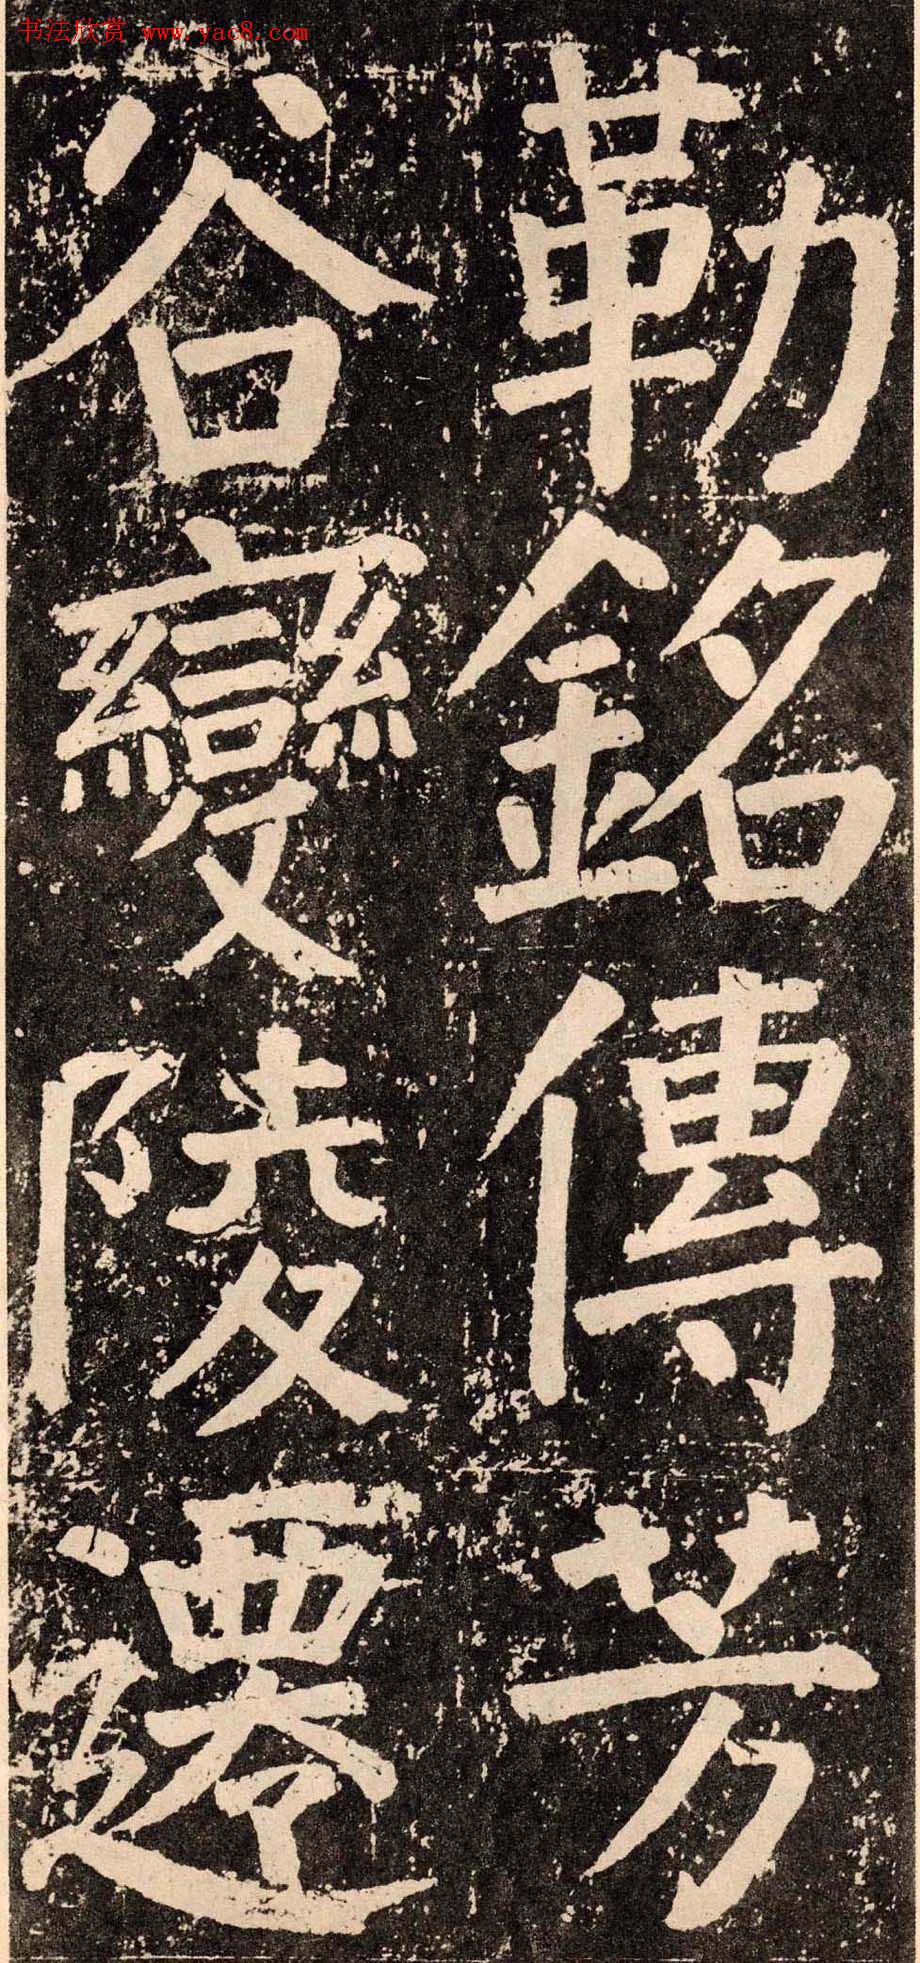 书法欣赏 www.yac8.com
勒銘傳芳
谷變陵遷